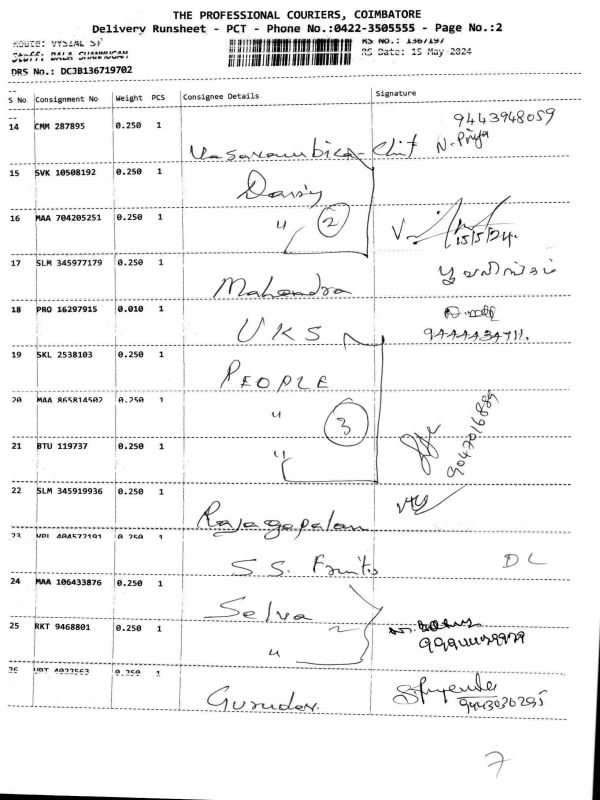 THE PROFESSIONAL COURIERS, COIMBATORE
Delivery Runsheet - PCT - Phone No.:0422-3505555 - Page No.:2
Route: VYSIAL ST RS No.: 1367197
Staff: BALA SHANMUGAM RS Date: 15 May 2024
DRS No.: DCJB136719702
S No Consignment No Weight PCS Consignee Details Signature
14 CMM 287895 0.250 1 9443948059
N. Priya
15 SVK 10508192 0.250 1 Daisy
16 MAA 704205251 0.250 1 〃 2 15/5/24
17 SLM 345977179 0.250 1 Mahendra
18 PRO 16297915 0.010 1 UKS 9444434711.
19 SKL 2538103 0.250 1 PEOPLE
20 MAA 865814502 0.250 1 〃 3 9047016889
21 BTU 119737 0.250 1 〃
22 SLM 345919936 0.250 1 Rajagopalan
23 0.250 1 S.S. Fruits DL
24 MAA 106433876 0.250 1 Selva
25 RKT 9468801 0.250 1 〃 2
26 0.250 1 Gurudev 9443030295
7